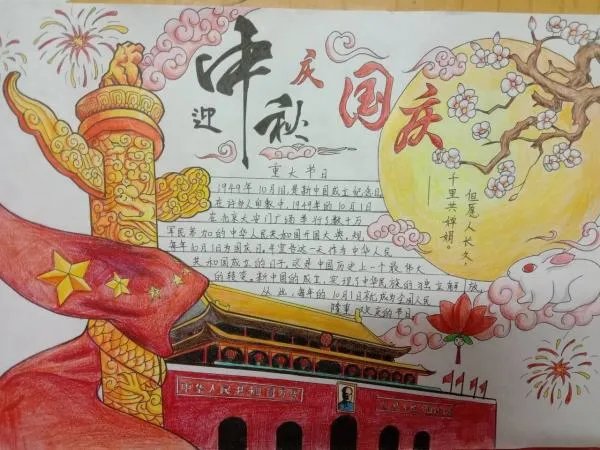 迎中秋
庆国庆
重大节日
1949年10月1日,是新中国成立纪念日
在许多人印象中,1949年的10月1日
在北京天安门广场举行了数十万
军民参加的中华人民共和国开国大典,规
每年10月1日为国庆日,并宣告这一天作为中华人民
共和国成立的日子,这是中国历史上一个最伟大
的转变。新中国的成立,实现了中华民族的独立解放,
从此,每年的10月1日就成为全国人民
隆重欢庆的节日
但愿人长久,
千里共婵娟。
中华人民共和国万岁